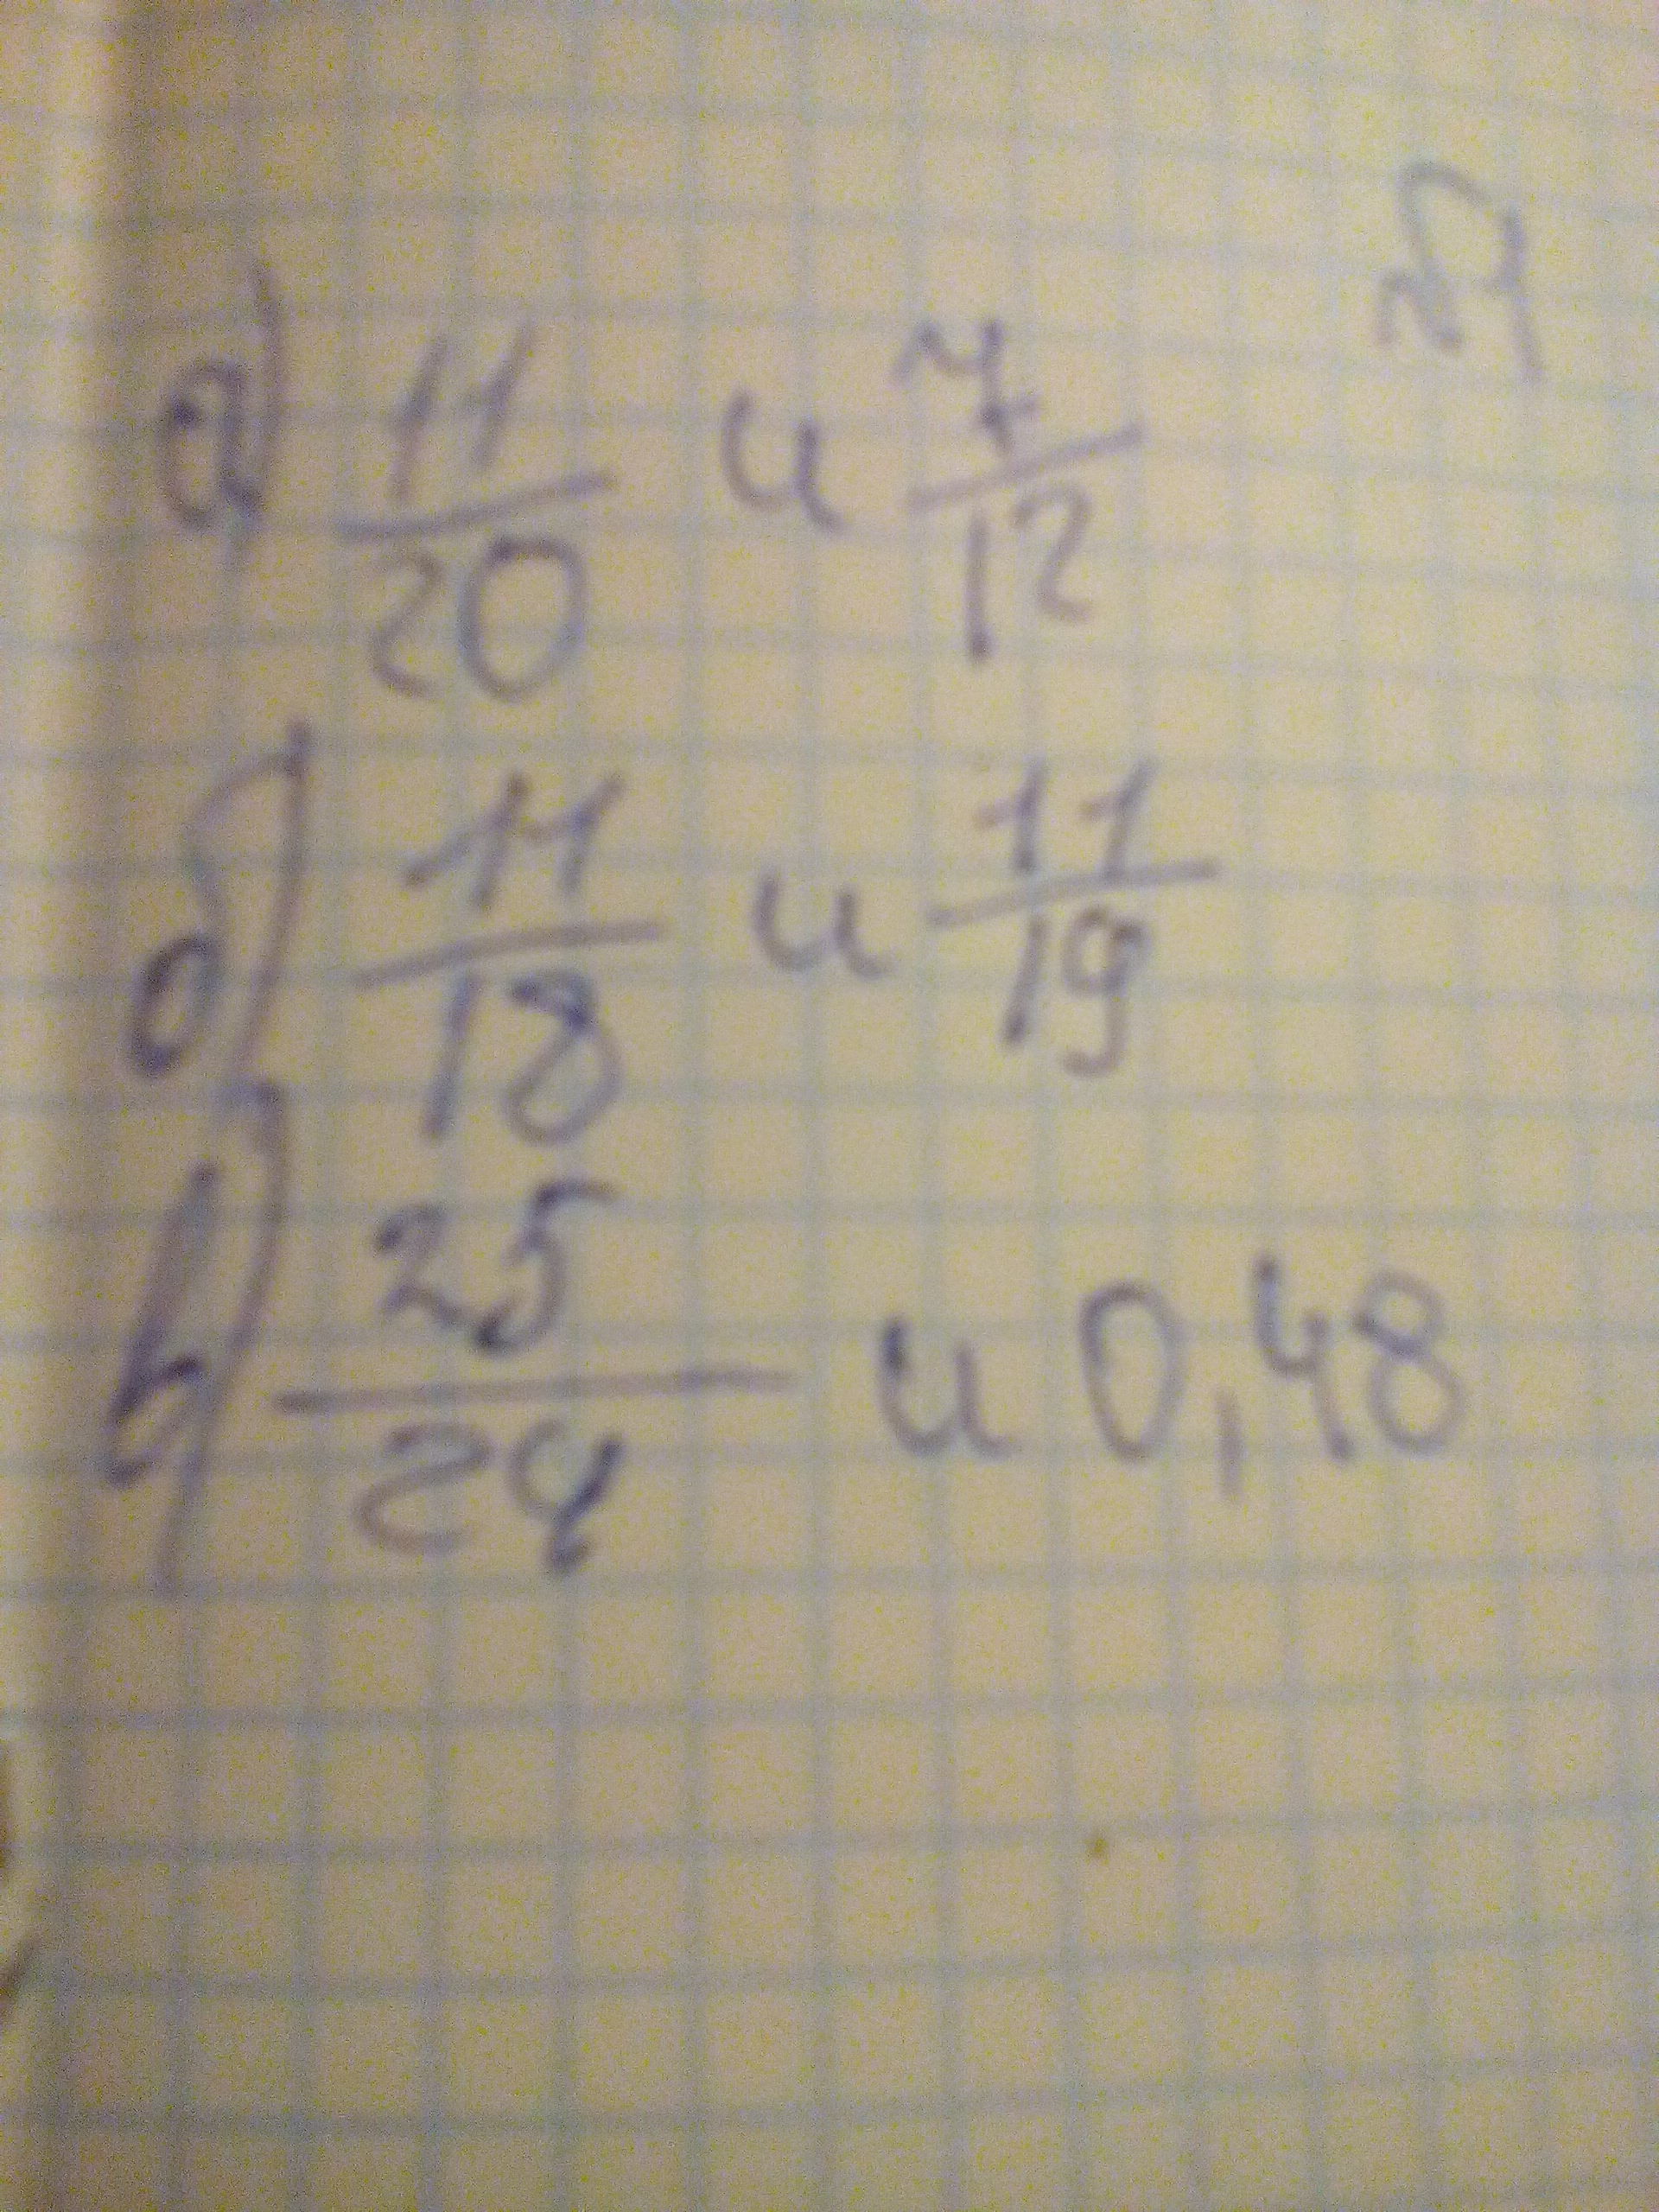 а) 11/20 и 7/12
б) 11/18 и 11/19
в) 25/24 и 0,48